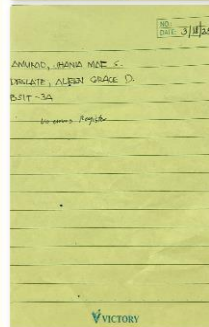 NO.
DATE: 3/11/25
AMUNO, JHANIA MAE S.
DEGLATE, AILEEN GRACE D.
BSIT-3A
Register
VICTORY